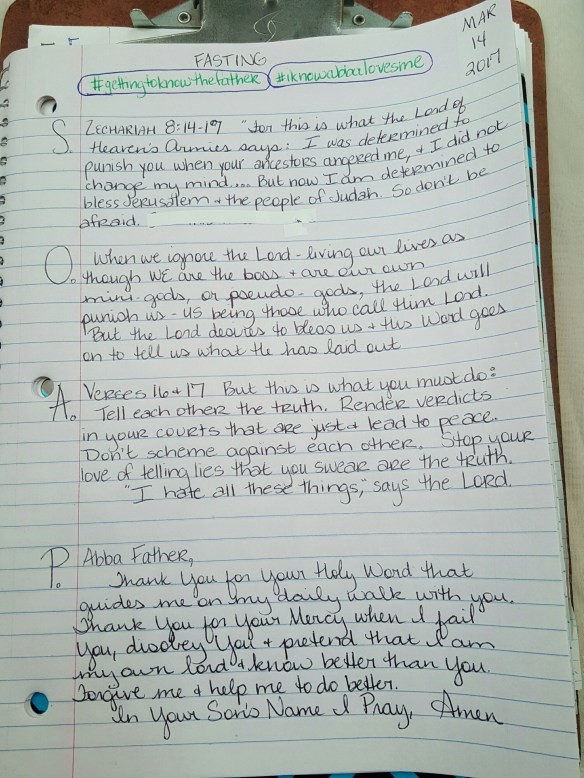 MAR
14
2017
FASTING
#gettingtoknowthefather #iknowabbalovesme
S. ZECHARIAH 8:14-17 "For this is what the Lord of
Heaven's Armies says: I was determined to
punish you when your ancestors angered me, + I did not
change my mind.... But now I am determined to
bless Jerusalem + the people of Judah. So don't be
afraid.
O. When we ignore the Lord - living our lives as
though WE are the boss + are our own
mini-gods, or pseudo-gods, the Lord will
punish us - US being those who call Him Lord.
But the Lord desires to bless us + His Word goes
on to tell us what He has laid out
A. Verses 16+17 But this is what you must do:
Tell each other the truth. Render verdicts
in your courts that are just + lead to peace.
Don't scheme against each other. Stop your
love of telling lies that you swear are the truth.
"I hate all these things," says the LORD.
P. Abba Father,
Thank You for Your Holy Word that
guides me on my daily walk with you.
Thank You for Your Mercy when I fail
You, disobey You + pretend that I am
my own lord + know better than You.
Forgive me + help me to do better.
In Your Son's Name I Pray, Amen